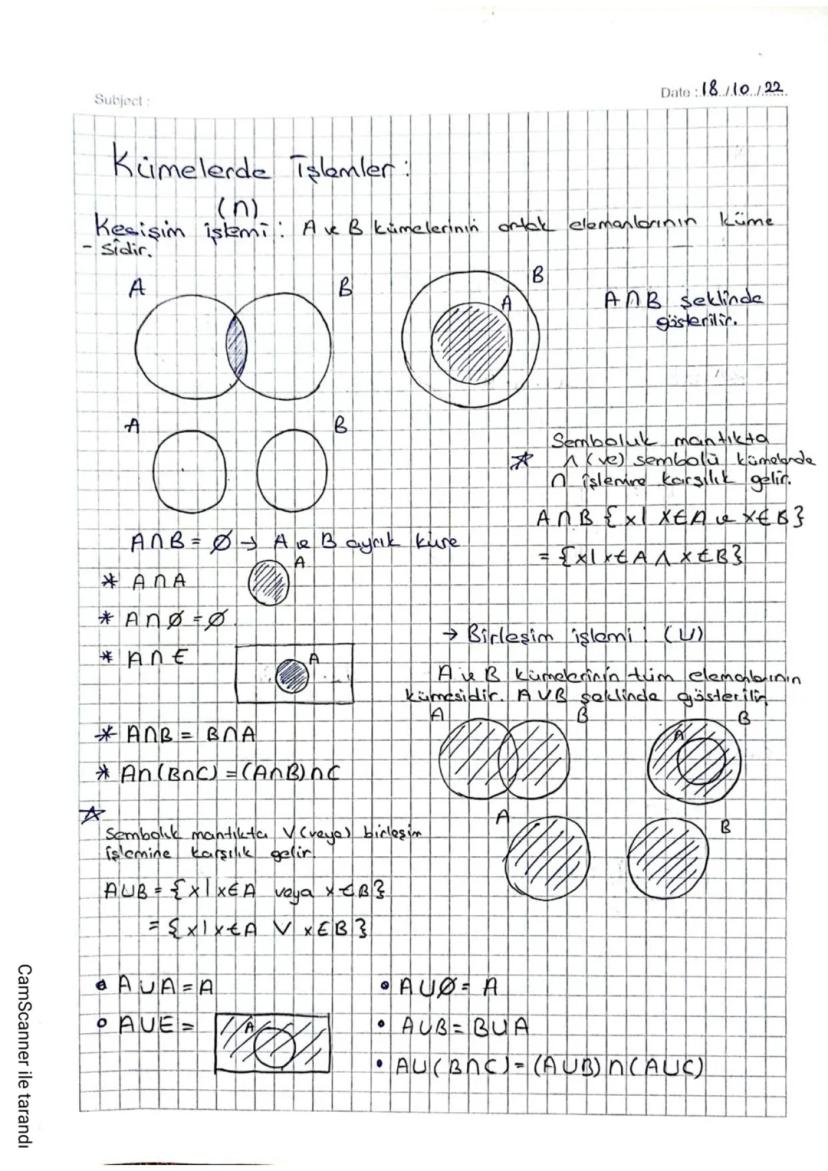 Subject :
Date : 18 / 10 / 22
Kümelerde İşlemler :
(∩)
Kesişim işlemi : A ve B kümelerinin ortak elemanlarının küme
- sidir.
A
B
B
A
A∩B şeklinde
gösterilir.
A
B
Semboluk mantıkta
☆ ∧ (ve) sembolü kümelerde
∩ işlemine karşılık gelir.
A∩B {x| x∈A ve x∈B}
= {x| x∈A ∧ x∈B}
A∩B = ∅ → A ve B ayrık küme
A
* A∩A
* A∩∅ = ∅
* A∩E
A
* A∩B = B∩A
* A∩(B∩C) = (A∩B)∩C
→ Birleşim işlemi : (∪)
A ve B kümelerinin tüm elemanlarının
kümesidir. A∪B şeklinde gösterilir.
A
B
A
B
A
B
☆
Sembolik mantıkta ∨ (veya) birleşim
işlemine karşılık gelir.
A∪B = {x| x∈A veya x∈B}
= {x| x∈A ∨ x∈B}
• A∪A = A
• A∪E =
A
• A∪∅ = A
• A∪B = B∪A
• A∪(B∩C) = (A∪B)∩(A∪C)
CamScanner ile tarandı